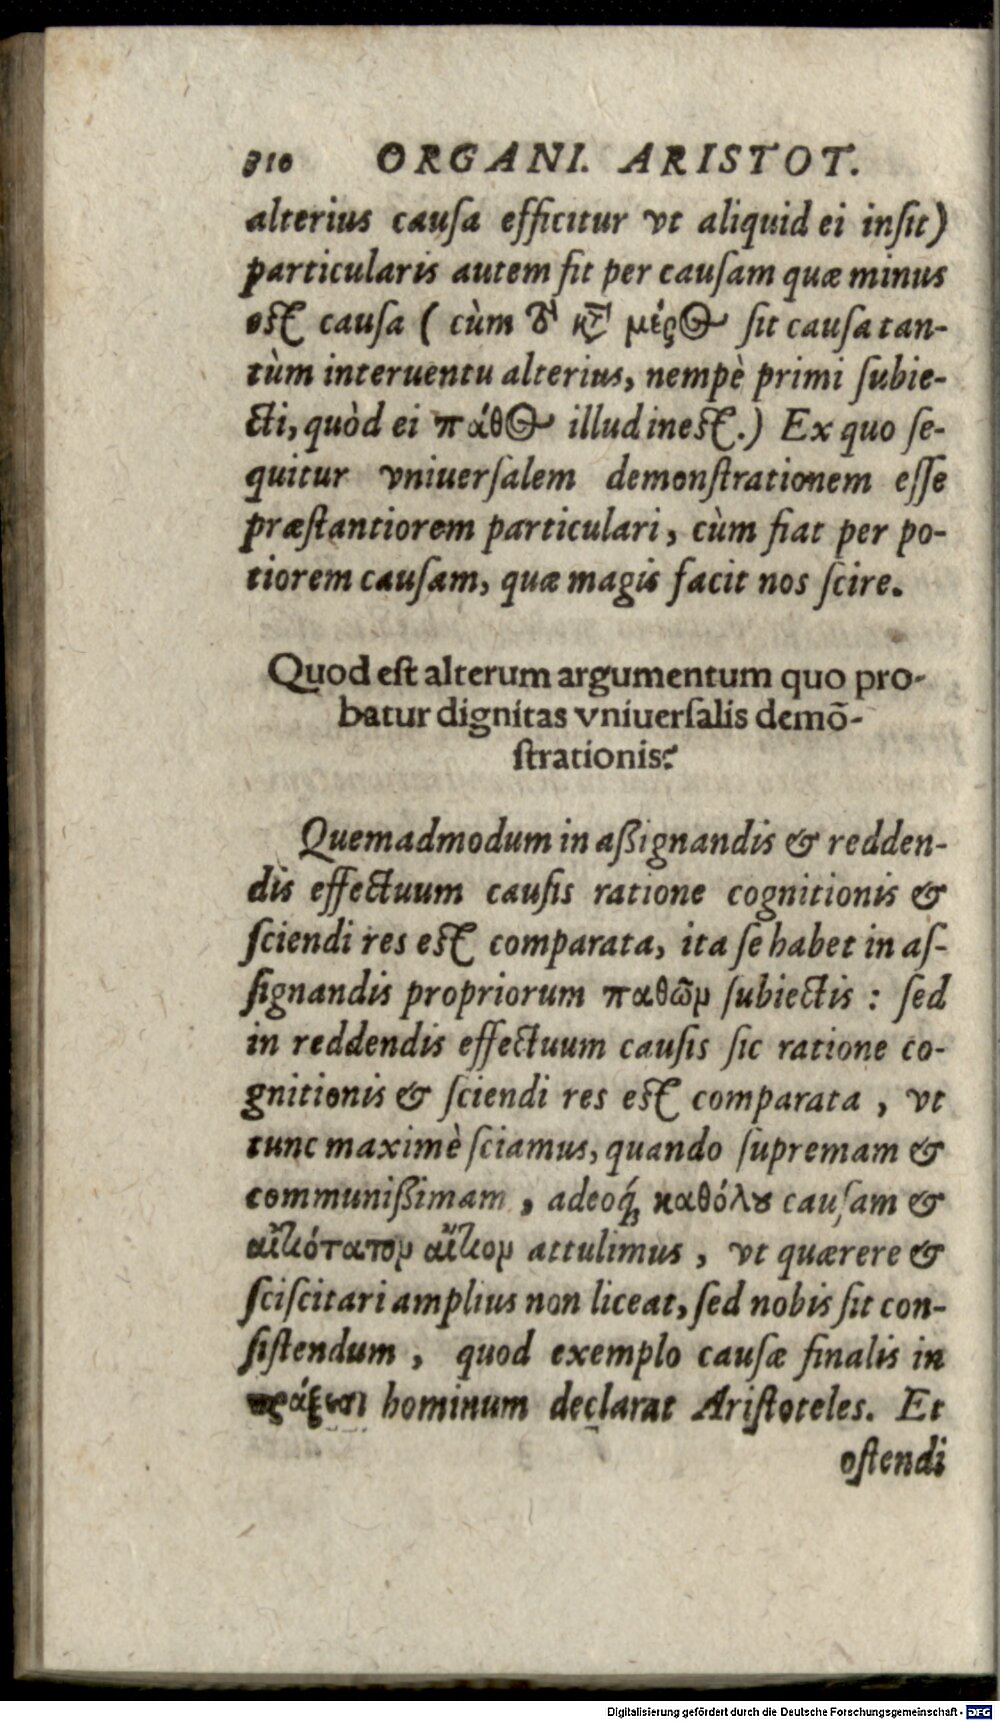 310 ORGANI. ARISTOT.
alterius causa efficitur vt aliquid ei insit)
particularis autem fit per causam quæ minus
est causa ( cùm τὸ κτ̀ μέρος sit causa tan-
tùm interuentu alterius, nempè primi subie-
cti, quòd ei πάθος illud inest.) Ex quo se-
quitur vniuersalem demonstrationem esse
præstantiorem particulari, cùm fiat per po-
tiorem causam, quæ magis facit nos scire.
Quod est alterum argumentum quo pro-
batur dignitas vniuersalis demõ-
strationis?
Quemadmodum in aßignandis & redden-
dis effectuum causis ratione cognitionis &
sciendi res est comparata, ita se habet in as-
signandis propriorum παθῶν subiectis : sed
in reddendis effectuum causis sic ratione co-
gnitionis & sciendi res est comparata , vt
tunc maximè sciamus, quando supremam &
communißimam , adeoq́; καθόλου causam &
αἰτιότατον αἴτιον attulimus , vt quærere &
sciscitari amplius non liceat, sed nobis sit con-
sistendum , quod exemplo causæ finalis in
πράξεσι hominum declarat Aristoteles. Et
ostendi
Digitalisierung gefördert durch die Deutsche Forschungsgemeinschaft - DFG